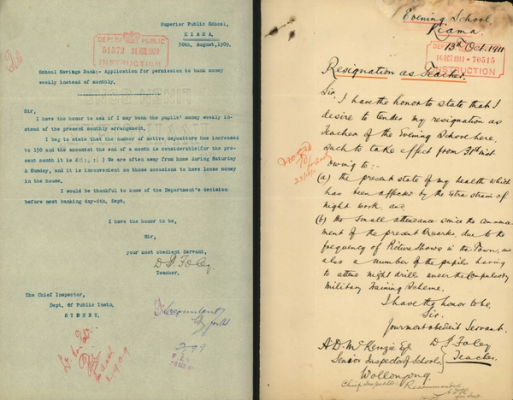 Superior Public School,
KIAMA,
30th, August, 1909.
DEPT OF PUBLIC
INSTRUCTION
School Savings Bank:- Application for permission to bank money
weekly instead of monthly.
Sir,
I have the honor to ask if I may bank the pupils' money weekly in-
stead of the present monthly arrangement.
I may to state that the number of active depositors has increased
to 150 and the amounts at the end of a month is considerable(for the pre-
sent month it is We are often away from home during Saturday
& Sunday, and it is inconvenient on those occasions to have loose money
in the house.
I would be thankful to know of the Department's decision
before next banking day-6th, Sept,
I have the honor to be,
Sir,
your most obedient Servant,
D J Foley
Teacher.
The Chief Inspector,
Dept. Of Public Instn,
SYDNEY.
Evening School,
Kiama
13th Oct 1911
DEPT OF PUBLIC
16 OCT.1911 • 70515
INSTRUCTION
Resignation as Teacher.
Sir,
I have the honor to state that I
desire to tender my resignation as
teacher of the Evening School here,
such to take effect from 31st inst
owing to:-
(a) the present state of my health which
has been affected by the extra strain of
night work and
(b) the small attendance since the commence
ment of the present Quarter due to the
frequency of Picture Shows in the Town, and
also a number of the pupils having
to attend night drill under the Compulsory
Military Training Scheme.
I have the honor to be,
Sir,
your most obedient Servant.
D J Foley
Teacher
A.D. McKenzie Esq
Senior Inspector of Schools
Wollongong
Chief Inspector Recommended